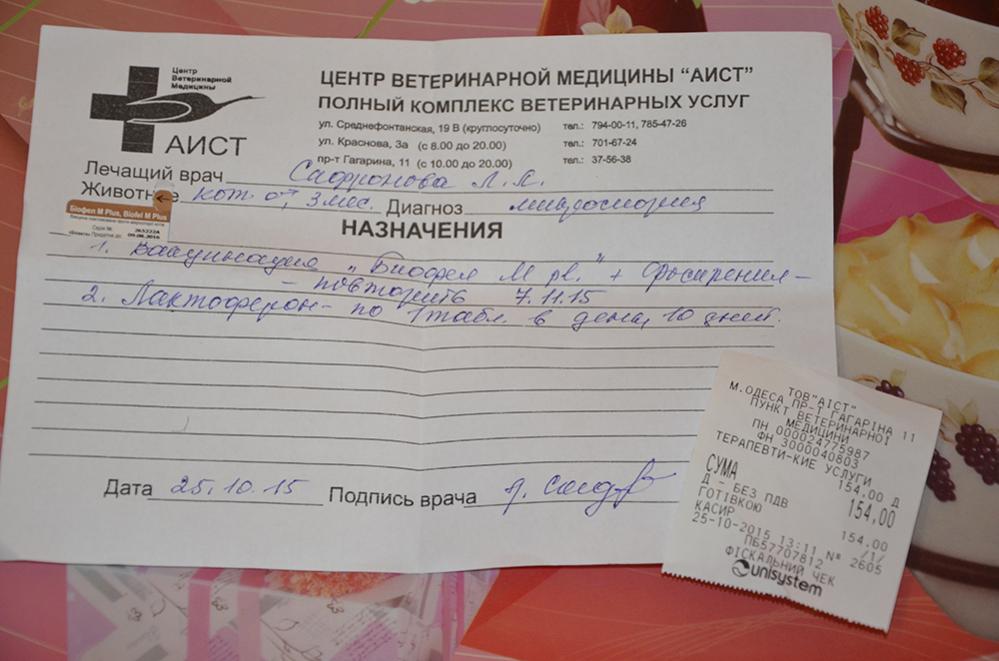 Центр
Ветеринарной
Медицины
АИСТ
ЦЕНТР ВЕТЕРИНАРНОЙ МЕДИЦИНЫ “АИСТ”
ПОЛНЫЙ КОМПЛЕКС ВЕТЕРИНАРНЫХ УСЛУГ
ул. Среднефонтанская, 19 В (круглосуточно) тел.: 794-00-11, 785-47-26
ул. Краснова, 3а (с 8.00 до 20.00) тел.: 701-67-24
пр-т Гагарина, 11 (с 10.00 до 20.00) тел.: 37-56-38
Лечащий врач Сафронова Л.Л.
Животное кот от 3 мес. Диагноз
Біофел М Plus, Biofel M Plus
Серія № 265222A
Придатна до 09.08.2016
НАЗНАЧЕНИЯ
1. Вакцинация „Биофел М pl." +
- повторить 7.11.15
2. Лактоферон - по 1 табл. в день, 10 дней.
Дата 25.10.15 Подпись врача
ТОВ"АІСТ"
М.ОДЕСА ПР-Т ГАГАРІНА 11
ПУНКТ ВЕТЕРИНАРНОІ
МЕДИЦИНИ
ПН 000024775987
ФН 3000040803
ТЕРАПЕВТИ-КИЕ УСЛУГИ
154,00 Д
СУМА 154,00
Д - БЕЗ ПДВ
ГОТІВКОЮ 154.00
КАСИР /1/
25-10-2015 13:11 № 2605
ПБ57707812
ФІСКАЛЬНИЙ ЧЕК
unisystem